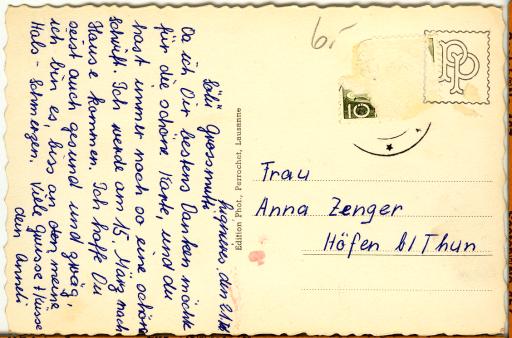 6.-
Leugnies, den 21.II.
Sali Grossmutti
Da ich Dir bestens Danken möchte
für die schöne Karte, und du
hast immer noch so eine schöne
Schrift. Ich werde am 15. März nach
Hause kommen. Ich hoffe Du
seist auch gesund und zwäg,
ich bin es, biss an den meine
Hals-Schmerzen. Viele Grüsse + Küsse
dein Anneli
Edition Phot., Perrochet, Lausanne
PP
10
Frau
Anna Zenger
Höfen b/Thun